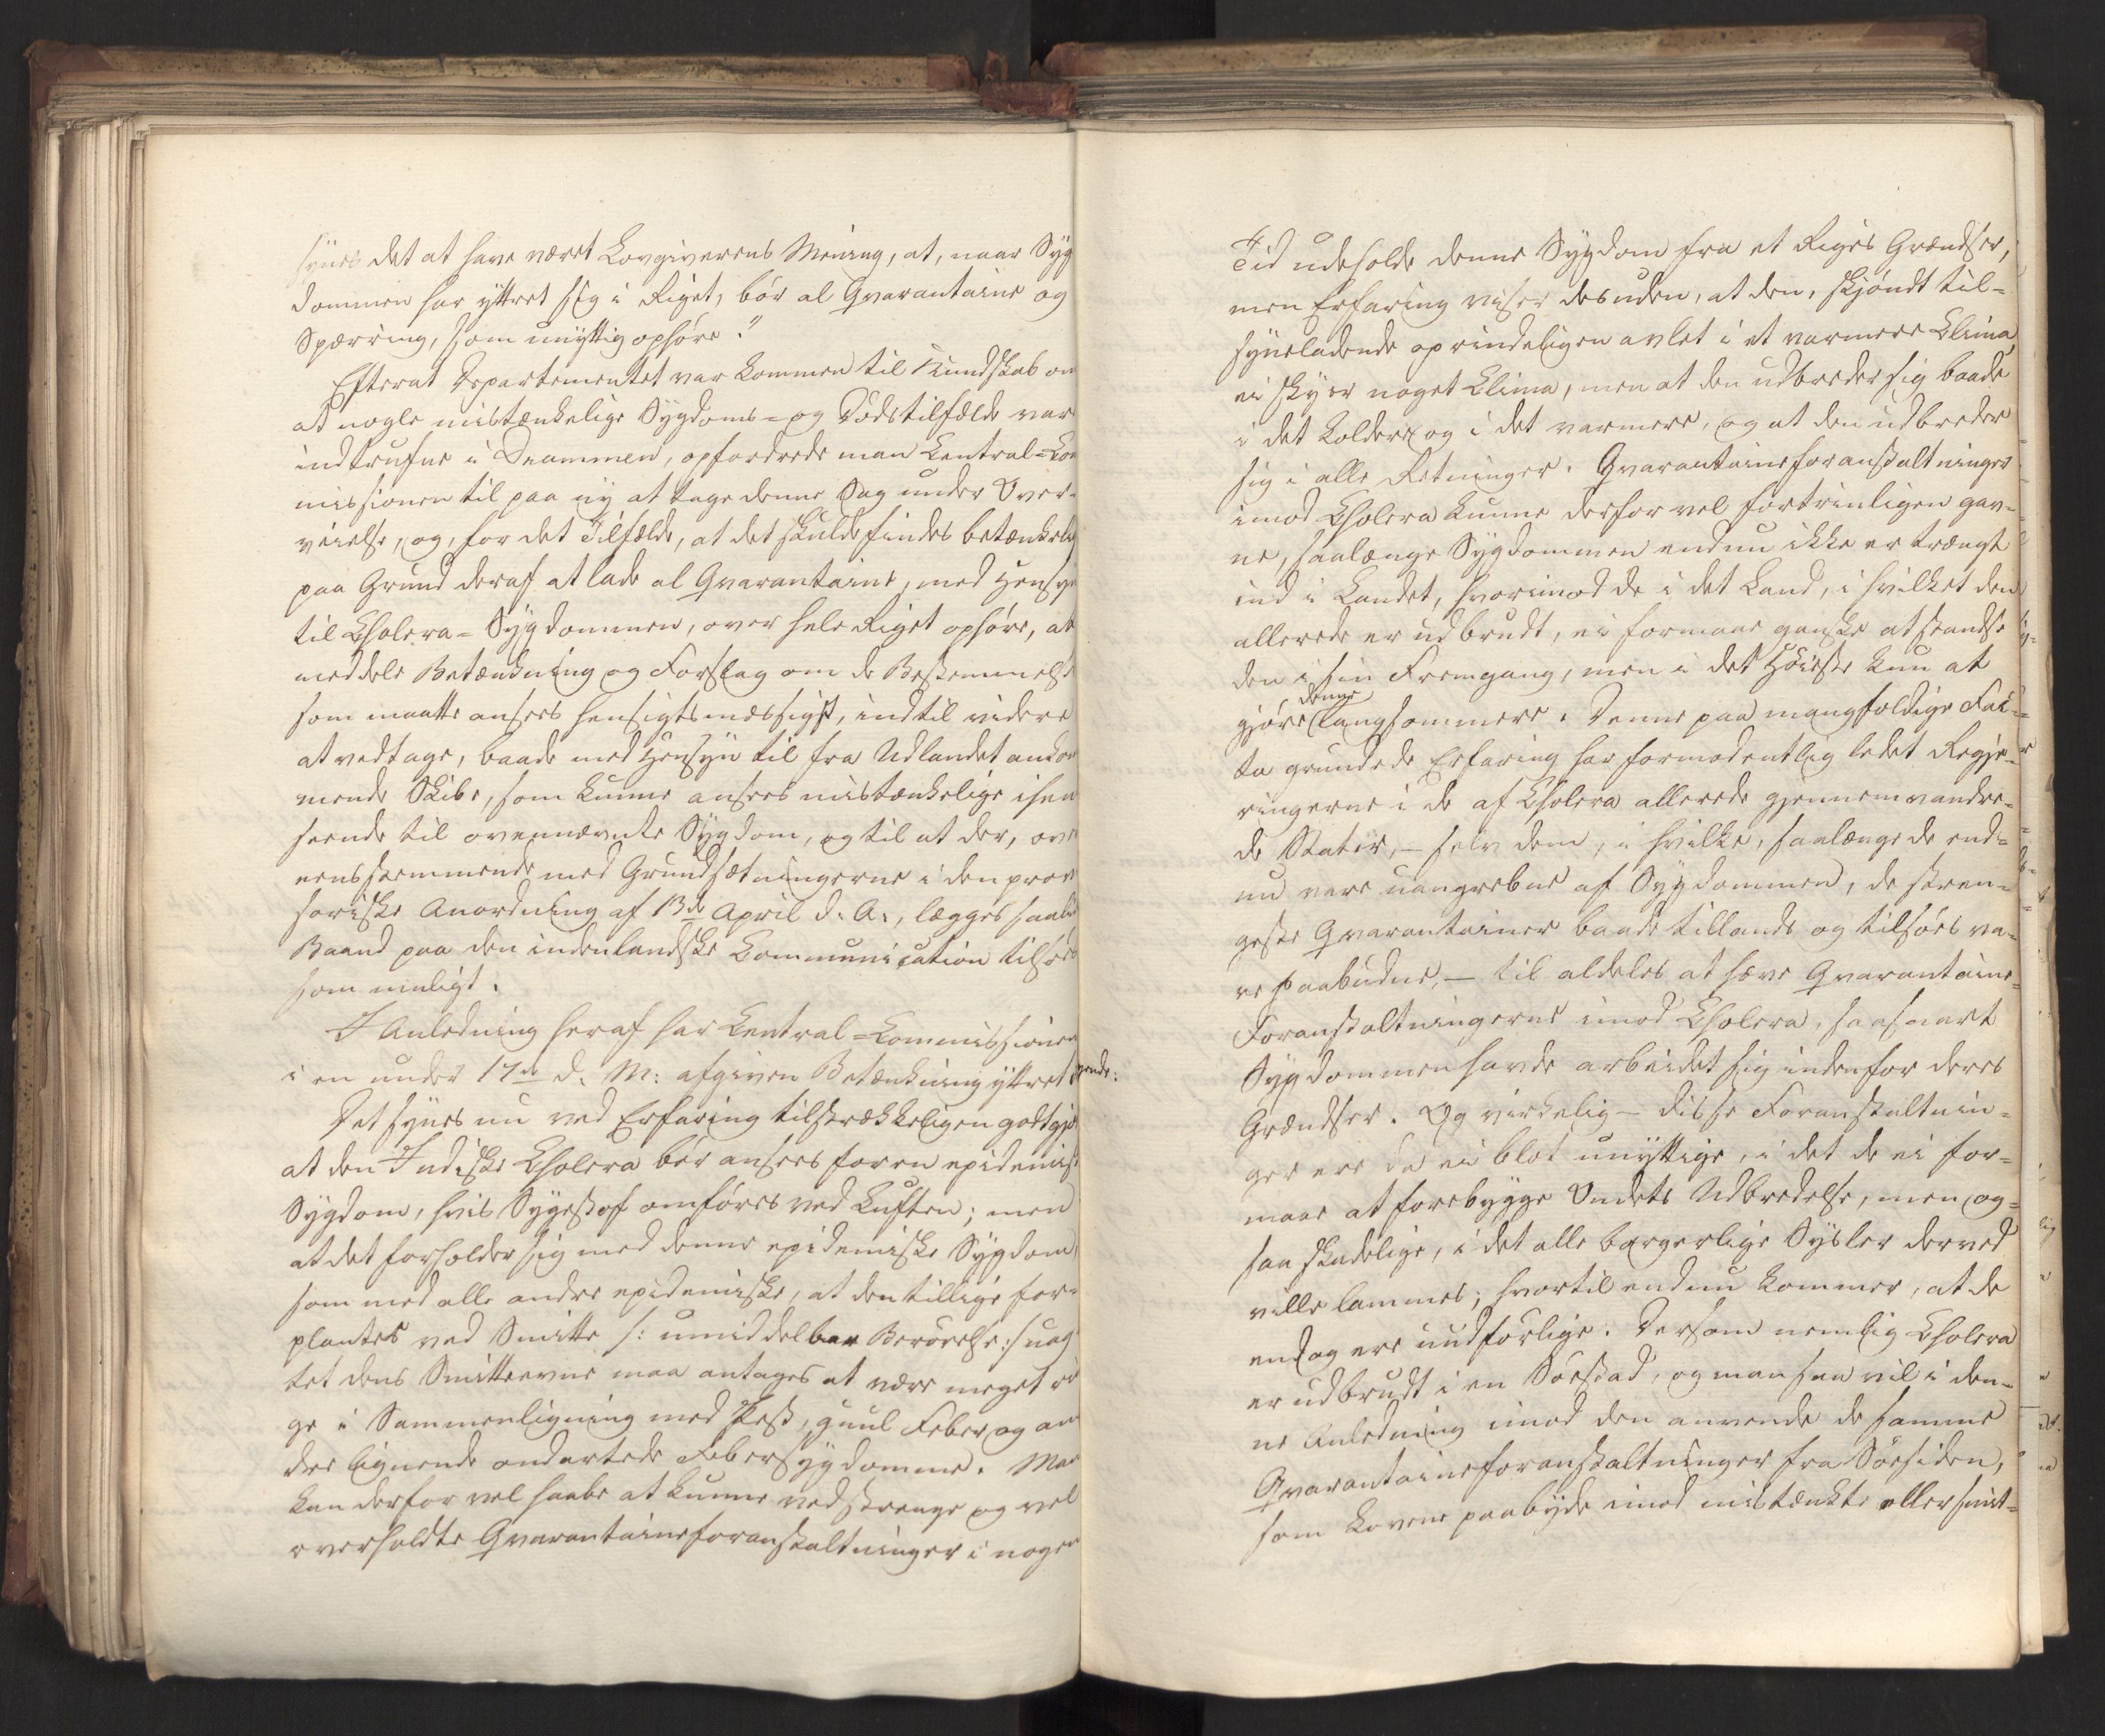 synes det at have været Lovgiverens Mening, at, naar Syg
dommen har yttret sig i Riget, bør al Qvarantaine og
Spærring, som unyttig ophøre."
Efterat Departementet var kommen til Kundskab om
at nogle mistænkelige Sygdoms- og Dødstilfælde var
indtrufne i Drammen, opfordrede man Central-Com
missionen til paa ny at tage denne Sag under Over-
veielse, og, for det Tilfælde, at det skulde findes betænkelig
paa Grund deraf at lade al Qvarantaine, med Hensyn
til Cholera-Sygdommen, over hele Riget ophøre, at
meddele Betænkning og Forslag om de Bestemmelse
som maatte ansees hensigtsmæssigst, indtil videre
at vedtage, baade med Hensyn til fra Udlandet ankom
mende Skibe, som kunne ansees mistænkelige ihen
seende til ovennævnte Sygdom, og til at der, over
eensstemmende med Grundsætningerne i den provi
soriske Anordning af 13de April d. A., lægges saa lidt
Baand paa den indenlandske Communication tilsøes
som muligt.
I Anledning heraf har Central-Commissionen
i en under 17de d. M: afgiven Betænkning yttret følgende:
Det synes nu ved Erfaring tilstrækkeligen godtgjor
at den Indiske Cholera bør ansees for en epidemisk
Sygdom, hvis Sygestof omføres ved Luften; men
at det forholder sig med denne epidemiske Sygdom,
som med alle andre epidemiske, at den tillige for-
plantes ved Smitte /: umiddelbar Berørelse :/ uag
tet dens Smitteevne maa antages at være meget rin
ge i Sammenligning med Pest, guul Feber og an
dre lignende ondartede Febersygdomme. Man
kan derfor vel haabe at kunne ved strenge og vel
overholdte Qvarantaineforanstaltninger i nogen
Tid udeholde denne Sygdom fra et Riges Grændser,
men Erfaring viser desuden, at den, skjøndt til-
syneladende oprindeligen avlet i et varmere Clima,
ei skyer noget Clima, men at den udbreder sig baade
i det koldere og i det varmere, og at den udbreder
sig i alle Retninger. Qvarantaineforanstaltninger
imod Cholera kunne derfor vel fortrinligen gav-
ne, saalænge Sygdommen endnu ikke er trængt
ind i Landet, hvorimod de i det Land, i hvilket den
allerede er udbrudt, ei formaae ganske at standse
den i sin Fremgang, men i det Høieste kun at
gjøre denne langsommere. Denne paa mangfoldige Fac-
ta grundede Erfaring har formodentlig ledet Regje-
ringerne i de af Cholera allerede gjennemvandre-
de Stater, – selv dem, i hvilke, saalænge de end-
nu vare uangrebne af Sygdommen, de stren-
geste Qvarantainer baade tillands og tilsøes va-
re paabudne, – til aldeles at hæve Qvarantaine-
Foranstaltningerne imod Cholera, saasnart
Sygdommen havde arbeidet sig indenfor deres
Grændser. Og virkelig – disse Foranstaltnin-
ger ere da ei blot unyttige, i det de ei for-
maae at forebygge Ondets Udbredelse, men og-
saa skadelige, i det alle borgerlige Sysler derved
ville lammes; hvortil endnu kommer, at de
endog ere uudførlige. Dersom nemlig Cholera
er udbrudt i en Søestad, og man saa vil i den-
ne Anledning imod den anvende de samme
Qvarantaineforanstaltninger fra Søesiden,
som Lovene paabyde imod mistænkte eller smit-